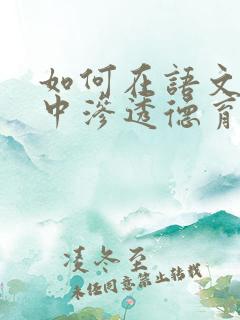 如何在語文
中滲透德育
淩冬至
未经同意禁止转载